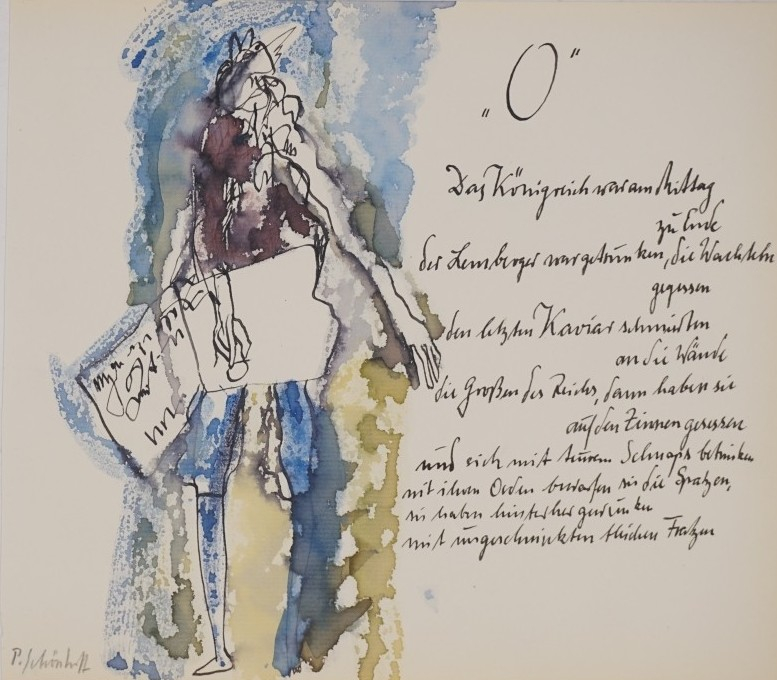 „O“
Das Königreich war am Mittag
zu Ende
der Lemberger war getrunken, die Wachteln
gegessen
den letzten Kaviar schmierten
an die Wände
die Großen des Reichs, dann haben sie
auf den Zinnen gesessen
und sich mit teurem Schnaps betrunken
mit ihren Orden bewarfen sie die Spatzen,
sie haben hinterher gewunken
mit ungeschminkten bleichen Fratzen